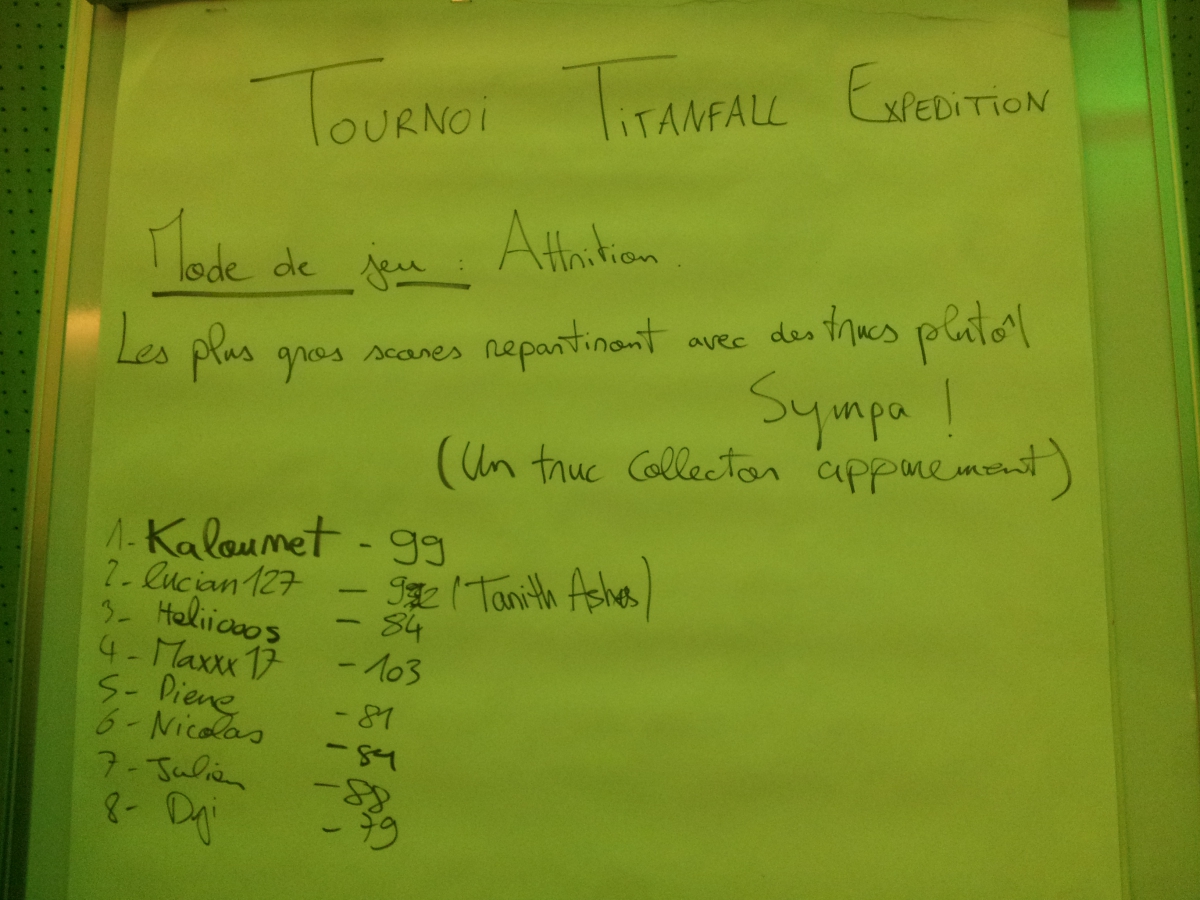 TOURNOi TiTANFALL EXPEDITION
Mode de jeu : Attrition.
Les plus gros scores repartiront avec des trucs plutôt
Sympa !
(Un truc Collector apparement)
1- Kaloumet - 99
2- lucian127 - 92 (Tanith Ashes)
3- Heliiooos - 84
4- Maxxx17 - 103
5- Pierre - 81
6- Nicolas - 84
7- Julien - 88
8- - 79